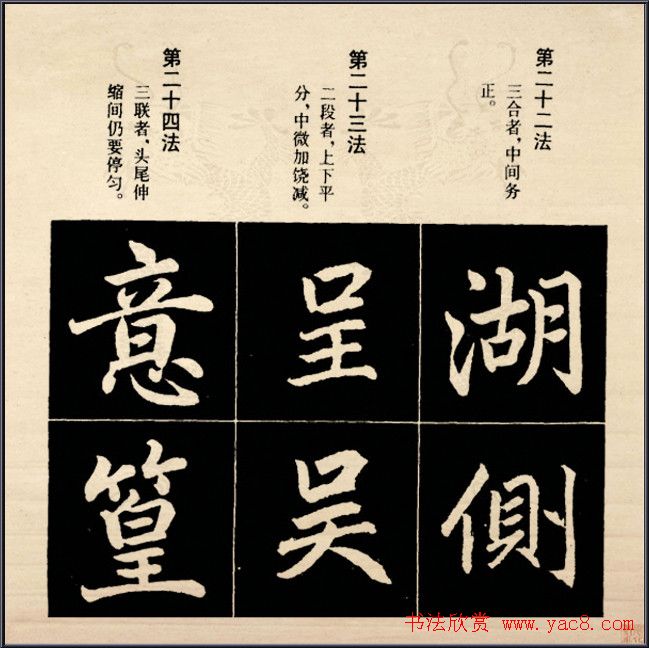 第二十二法
三合者，中间务
正。
第二十三法
二段者，上下平
分，中微加饶减。
第二十四法
三联者，头尾伸
缩间仍要停匀。
湖
侧
呈
吴
意
篁
书法欣赏 www.yac8.com